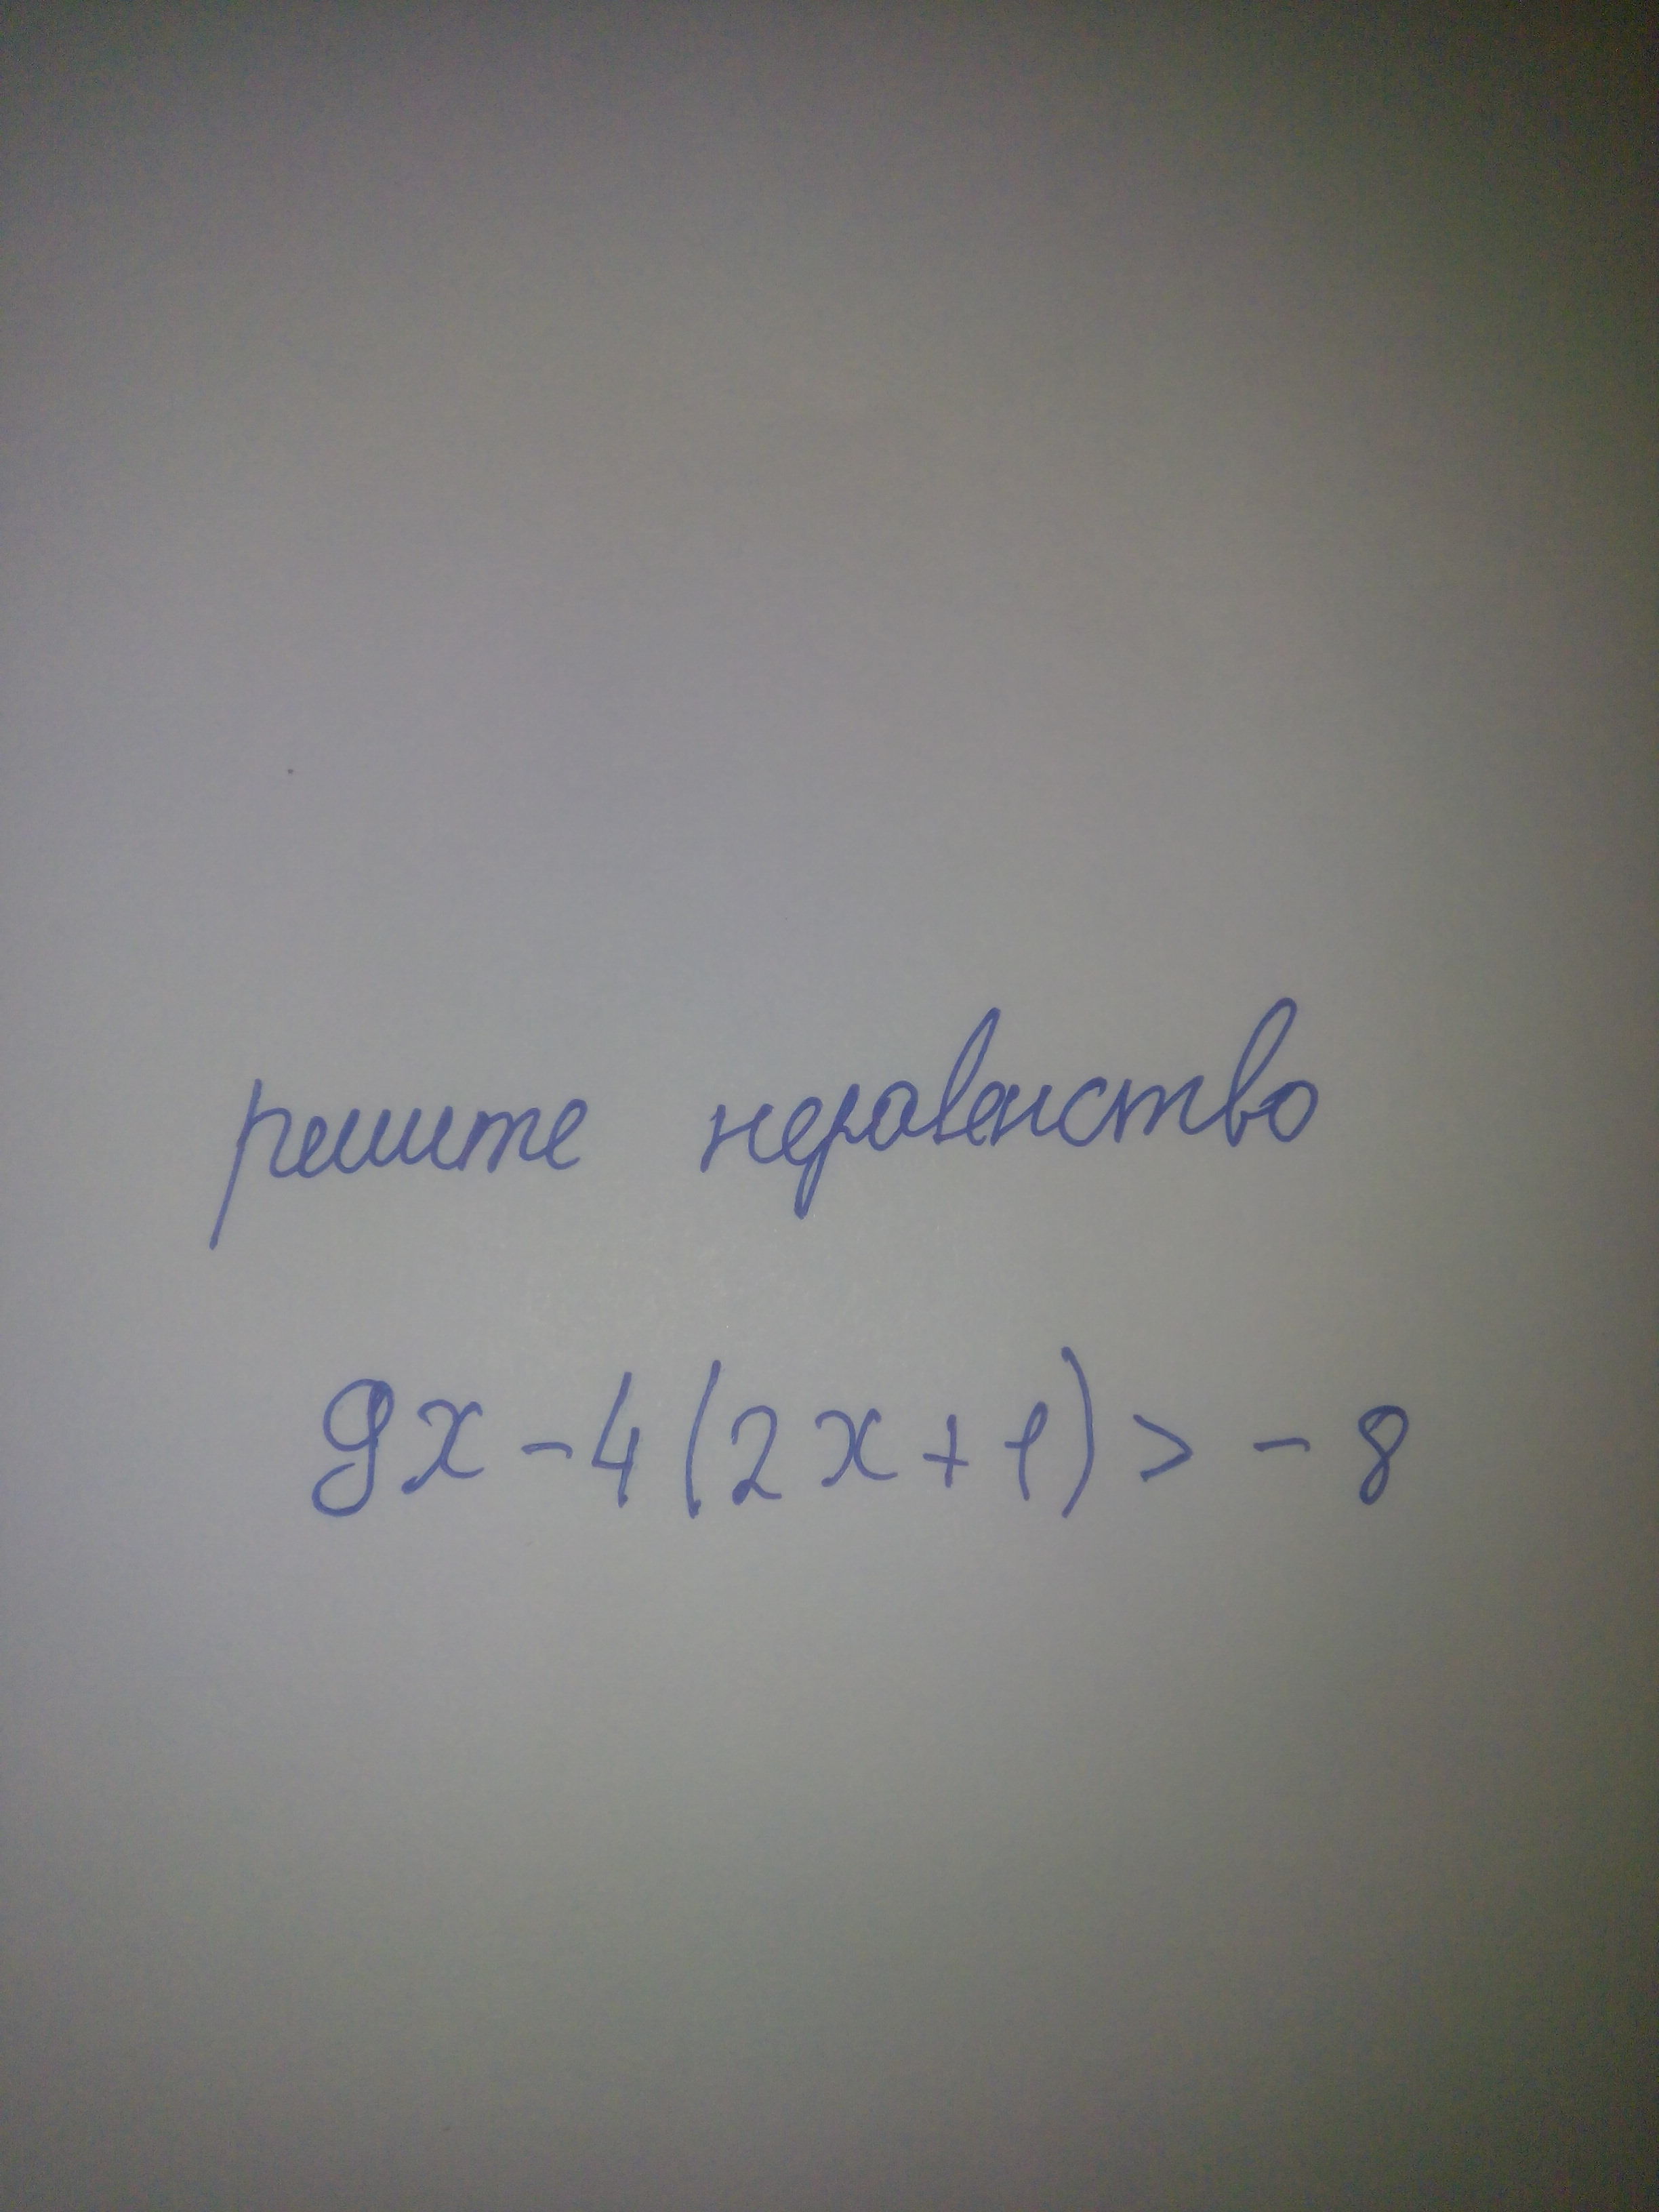 решите неравенство
9x - 4(2x + 1) > - 8